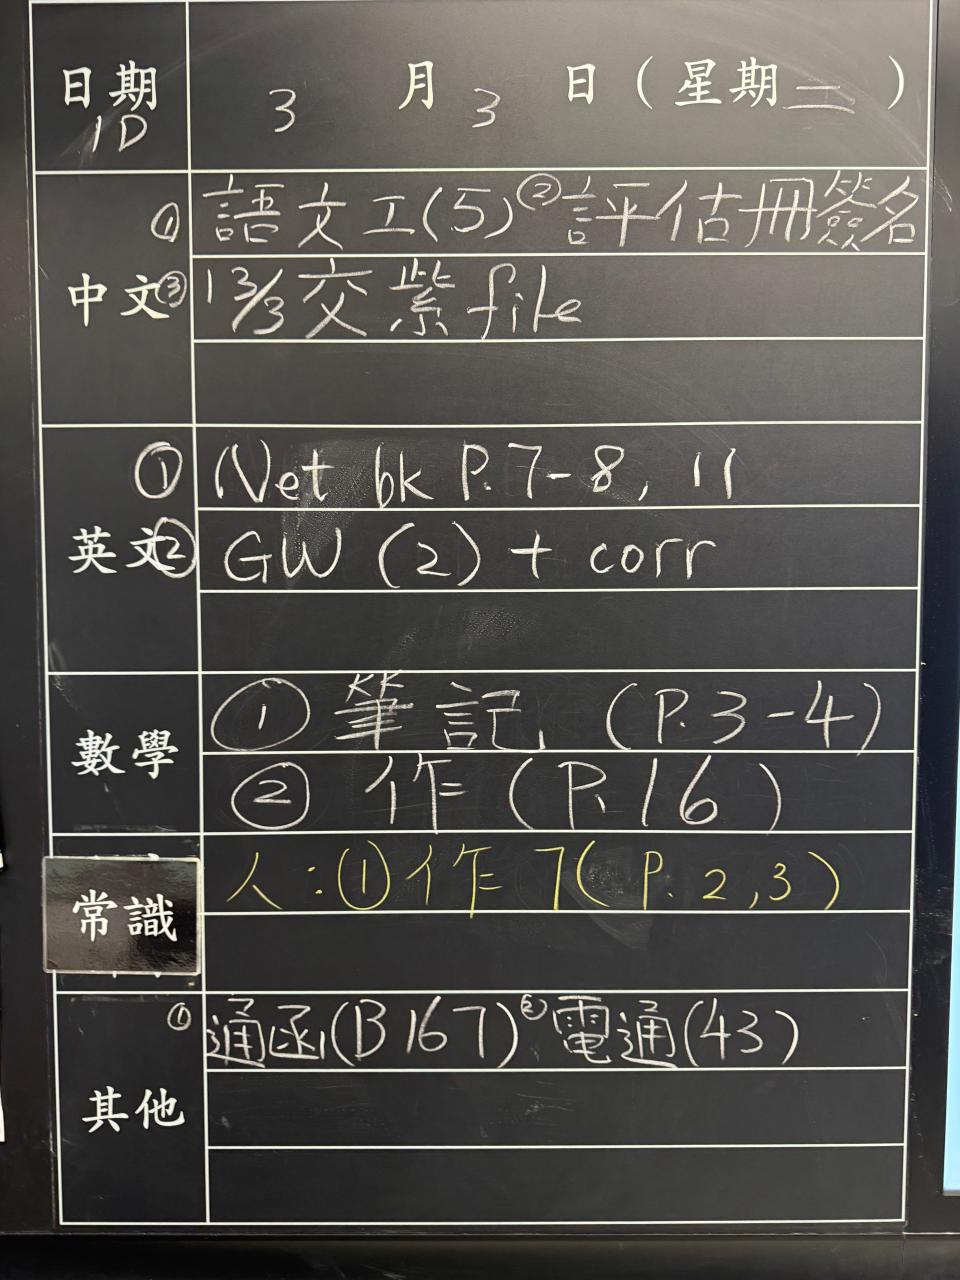 日期 3 月 3 日（星期二）
1D
① 語文工(5) ② 評估冊簽名
中文 ③ 13/3交紫file
① Net bk P.7-8, 11
英文 ② GW (2) + corr
① 筆記 (P.3-4)
數學
② 作 (P.16)
人:①作7(P.2,3)
常識
① 通函(B167) ② 電通(43)
其他